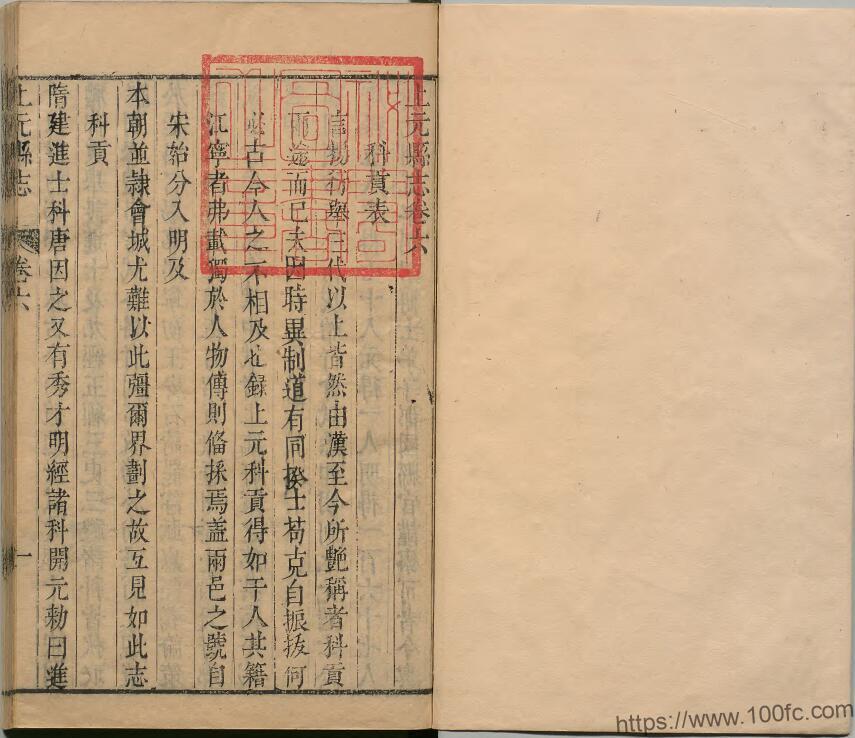 上元縣志卷六
科貢表
言揚行舉三代以上皆然由漢至今所艷稱者科貢
兩途而已夫因時異制道有同揆士苟克自振拔何
必古今人之不相及也錄上元科貢得如干人其籍
江寧者弗載獨於人物傳則備採焉蓋兩邑之號自
宋始分入明及
本朝並隸會城尤難以此彊爾界劃之故互見如此志
科貢
隋建進士科唐因之又有秀才明經諸科開元勅曰進
上元縣志
卷六
一
https://www.100fc.com